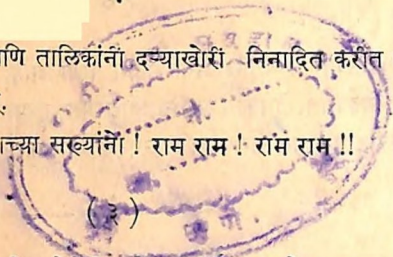 णि तालिकांनीं दऱ्याखोरीं निनादित करीत
च्या सख्यांनो ! राम राम ! राम राम !!
( ३ )